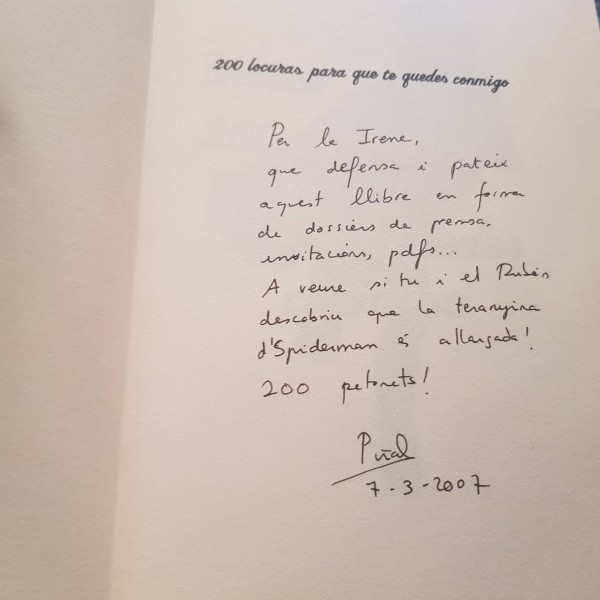 200 locuras para que te quedes conmigo
Per la Irene,
que defensa i pateix
aquest llibre en forma
de dossiers de premsa,
invitacions, pdfs...
A veure si tu i el Rubén
descobriu que la teranyina
d'Spiderman és allargada!
200 petonets!
Piñol
7-3-2007